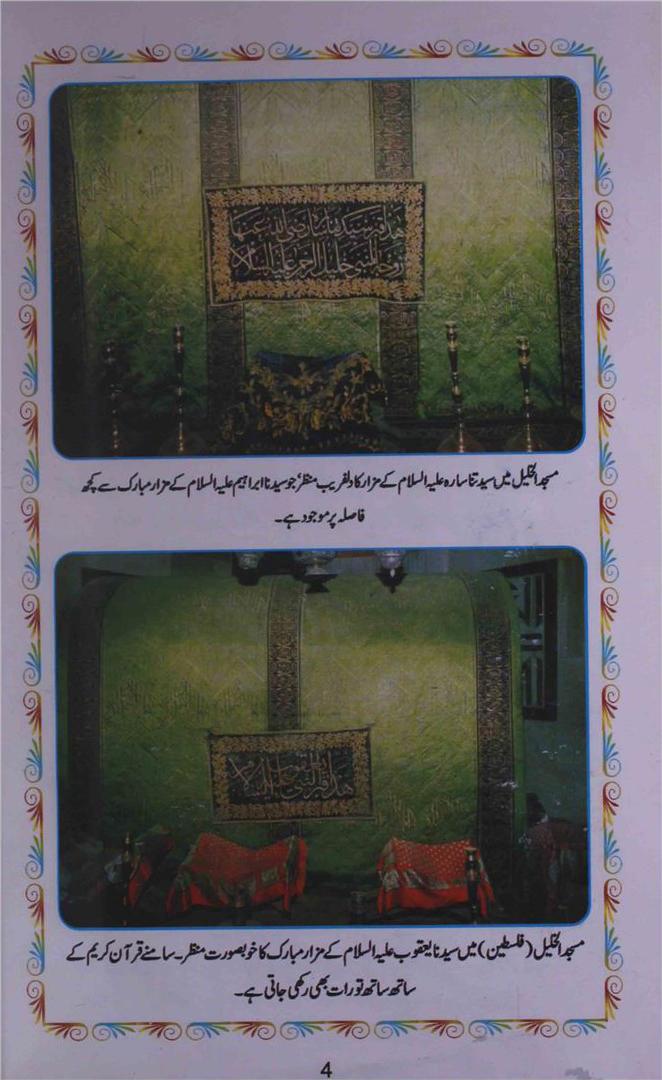 هذا قبر سيدتنا سارة رضي الله عنها
زوجة النبي خليل الرحمن عليه السلام
مسجد الخلیل میں سیدتنا سارہ علیہ السلام کے مزار کا دلفریب منظر' جو سیدنا ابراہیم علیہ السلام کے مزار مبارک سے کچھ
فاصلہ پر موجود ہے۔
هذا قبر النبي يعقوب عليه السلام
مسجد الخلیل (فلسطین) میں سیدنا یعقوب علیہ السلام کے مزار مبارک کا خوبصورت منظر۔ سامنے قرآن کریم کے
ساتھ ساتھ تورات بھی رکھی جاتی ہے۔
4